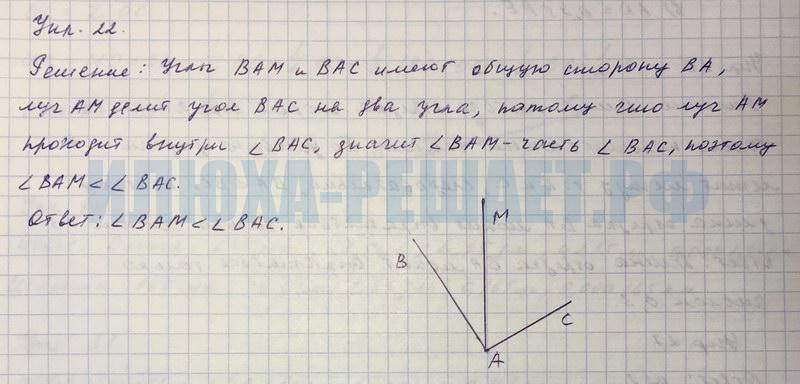 Упр. 22.
Решение: Углы BAM и BAC имеют общую сторону BA,
луч AM делит угол BAC на два угла, потому что луч AM
проходит внутри ∠BAC, значит ∠BAM - часть ∠ BAC, поэтому
∠BAM < ∠ BAC.
ИЛЮХА-РЕШАЕТ.РФ
Ответ: ∠BAM < ∠ BAC.
M
B
C
A